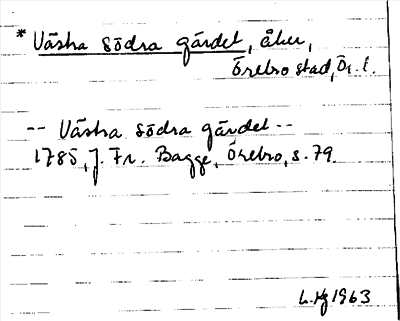 * Västra södra gärdet, åker,
Örebro stad, Ör. l.
-- Västra södra gärdet --
1785, J. Fr. Bagge, Örebro, s. 79.
L. Hg 1963